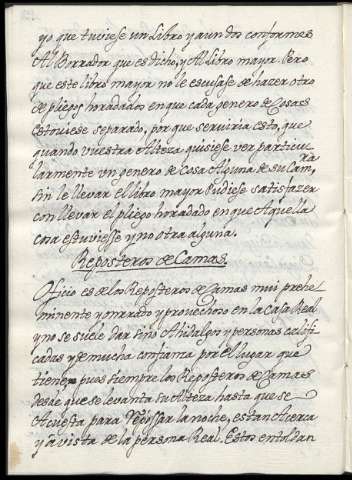 yo que tuviese un Libro y aun dos conformes
Al Borrador que es dicho, y Al Libro mayor. Pero
que este libro mayor no le escusase de hazer otro
de pliegos horadados en que cada genero de Cosas
estoviese separado, por que serviria esto, que
quando vuestra Alteza quisiese ver particu
larmente vn genero de cosa Alguna de su Camra
sin le llevar El libro mayor Pudiese satisfazer
con llevar el pliego horadado en que Aquella
cosa estuviesse y no otra alguna.
Reposteros de Camas.
Officio es de los Reposteros de Camas mui prehe
minente y onrrado y provechoso en la Casa Real
y no se suele dar sino A hidalgos y personas calofi
cadas y de mucha confianza por el lugar que
tiene, pues siempre los Reposteros de Camas
desde que se levanta su Alteza hasta que se
Acuesta para Repossar la noche, estan Acerca
y a vista de la persona Real. Estos entoldan